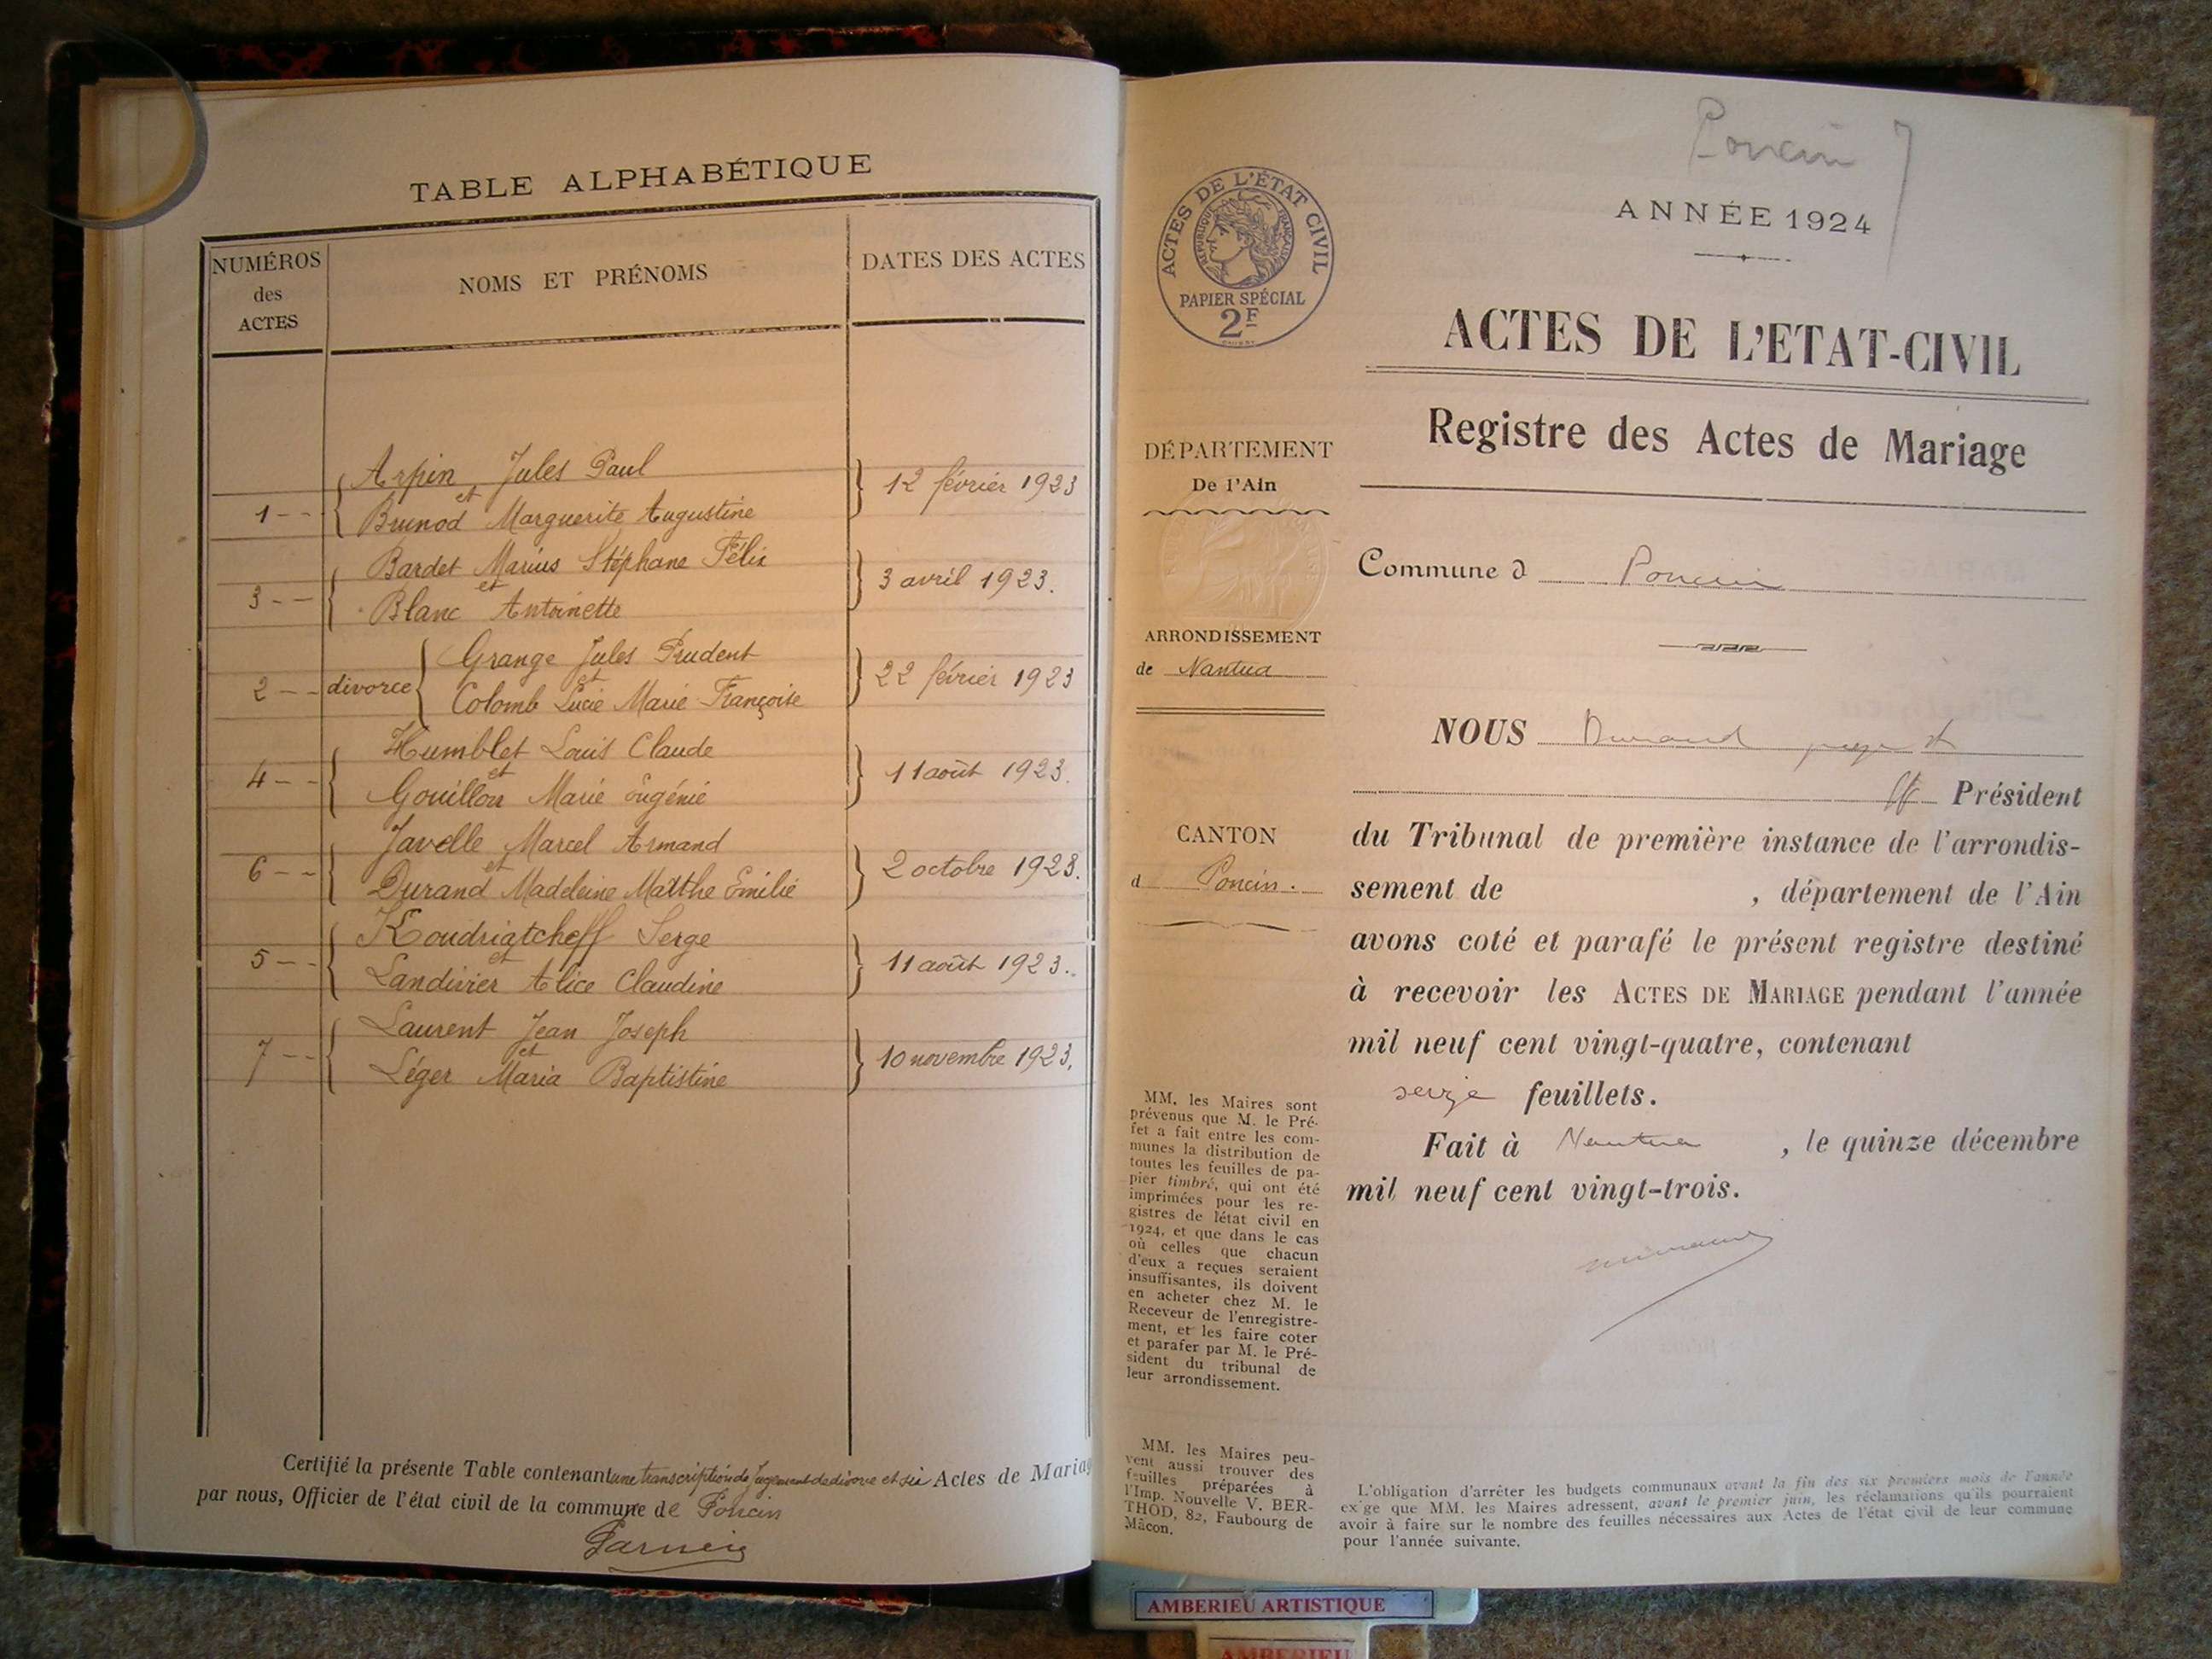 TABLE ALPHABÉTIQUE
NUMÉROS
des
ACTES
NOMS ET PRÉNOMS
DATES DES ACTES
Arpin Jules Paul
1 -- et 12 février 1923
Brunod Marguerite Augustine
Bardet Marius Stéphane Félix
3 -- et 3 avril 1923.
Blanc Antoinette
Grange Jules Prudent
2 -- divorce et 22 février 1923
Colomb Lucie Marie Françoise
Humblet Louis Claude
4 -- et 11 août 1923.
Gouillon Marie Eugénie
Javelle Marcel Armand
6 -- et 2 octobre 1923.
Durand Madeleine Marthe Emilie
Koudriatcheff Serge
5 -- et 11 août 1923.
Landivier Alice Claudine
Laurent Jean Joseph
7 -- et 10 novembre 1923.
Léger Maria Baptistine
Certifié la présente Table contenant une transcription de jugement de divorce et six Actes de Mariag
par nous, Officier de l'état civil de la commune de Poncin
Poncin
ANNÉE 1924
ACTES DE L'ÉTAT CIVIL
RÉPUBLIQUE FRANÇAISE
PAPIER SPÉCIAL
2F
ACTES DE L'ETAT-CIVIL
Registre des Actes de Mariage
DÉPARTEMENT
De l'Ain
ARRONDISSEMENT
de Nantua
CANTON
d Poncin.
MM. les Maires sont
prévenus que M. le Pré-
fet a fait entre les com-
munes la distribution de
toutes les feuilles de pa-
pier timbré, qui ont été
imprimées pour les re-
gistres de l'état civil en
1924, et que dans le cas
où celles que chacun
d'eux a reçues seraient
insuffisantes, ils doivent
en acheter chez M. le
Receveur de l'enregistre-
ment, et les faire coter
et parafer par M. le Pré-
sident du tribunal de
leur arrondissement.
MM. les Maires peu-
vent aussi trouver des
feuilles préparées à
l'Imp. Nouvelle V. BER-
THOD, 82, Faubourg de
Mâcon.
Commune d Poncin
NOUS Durand
ff Président
du Tribunal de première instance de l'arrondis-
sement de , département de l'Ain
avons coté et parafé le présent registre destiné
à recevoir les ACTES DE MARIAGE pendant l'année
mil neuf cent vingt-quatre, contenant
seize feuillets.
Fait à Nantua , le quinze décembre
mil neuf cent vingt-trois.
L'obligation d'arrêter les budgets communaux avant la fin des six premiers mois de l'année
exige que MM. les Maires adressent, avant le premier juin, les réclamations qu'ils pourraient
avoir à faire sur le nombre des feuilles nécessaires aux Actes de l'état civil de leur commune
pour l'année suivante.
AMBERIEU ARTISTIQUE
AMBERIEU